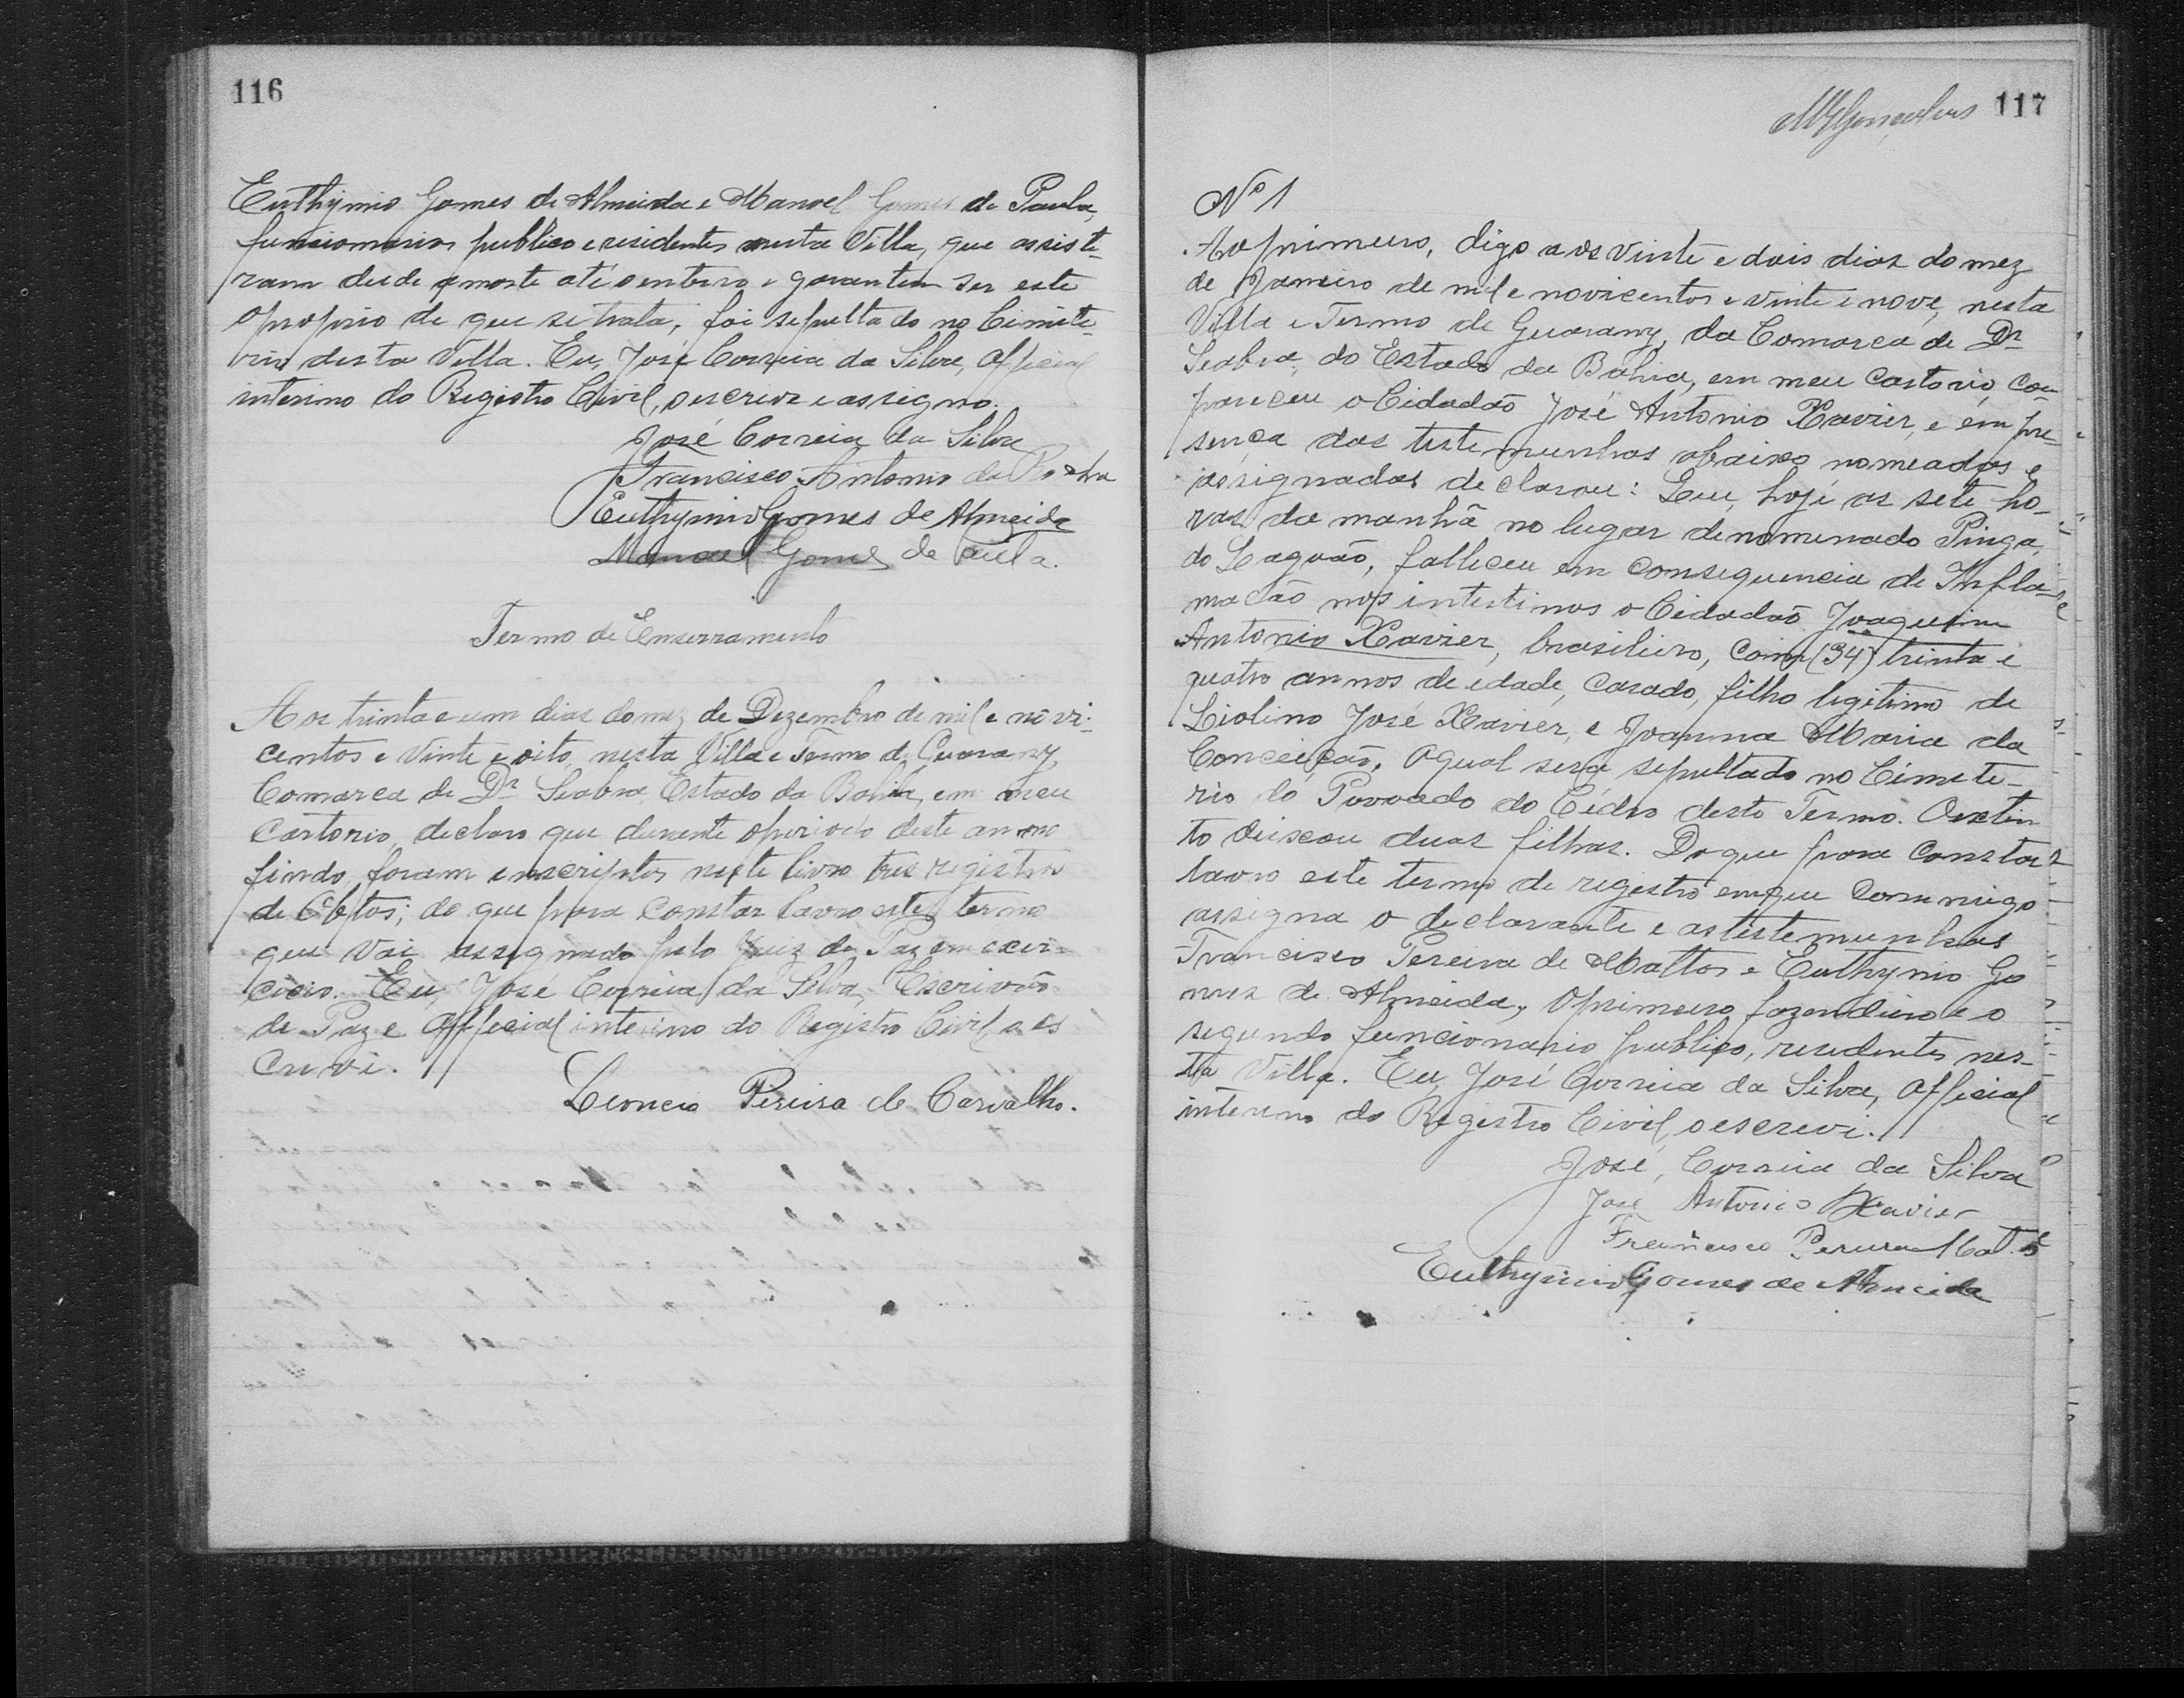 116
Euthymio Gomes de Almeida e Manoel Gomes de Paula,
funcionarios publico e residentes nesta Villa, que assisti-
ram desde a morte até o enterro e garantem ser este
o proprio de que se trata, foi sepultado no Cimite-
rio desta Villa. Eu, José Correia da Silva, Official
interino do Registro Civil, o escrevi e assigno.
José Correia da Silva
Francisco Antonio da Rocha
Euthymio Gomes de Almeida
Manoel Gomes de Paula.
Termo de Enserramento
Aos trinta e um dias do mez de Dezembro de mil e novi-
centos e vinte e oito, nesta Villa e Termo de Guarany,
Comarca de Dr Seabra, Estado da Bahia, em meu
Cartorio, declaro que durante o periodo deste anno
findo, foram inscriptos neste livro tres registros
de Obtos; do que para constar lavro este termo
que vai assignado pelo Juiz de Paz em exer-
cicio. Eu, José Correia da Silva, Escrivão
de Paz e Official interino do Registro Civil, o es
crevi.
Leoncio Pereira de Carvalho.
117
Nº 1
Ao primeiro, digo aos vinte e dois dias do mez
de Janeiro de mil e novicentos e vinte e nove, nesta
Villa e Termo de Guarany, da Comarca de Dr
Seabra, do Estado da Bahia, em meu Cartorio, com-
pareceu o Cidadão José Antonio Xavier, e em pre-
sença das testemunhas abaixo nomeadas e
assignadas declarou: Que, hoje as sete ho-
ras da manhã no lugar denominado Pinga
do Lagoão, falleceu em consequencia de Infla-
mação nos intestinos o Cidadão Joaquim
Antonio Xavier, brasileiro, com (34) trinta e
quatro annos de edade, casado, filho legitimo de
Liolino José Xavier, e Joanna Maria da
Conceição, o qual será sepultado no Cimete-
rio do Povoado do Cédro deste Termo. O extin
to deixou duas filhas. Do que para constar
lavro este termo de registro em que commigo
assigna o declarante e as testemunhas
Francisco Pereira de Mattos e Euthymio Go
mes de Almeida, o primeiro fazendeiro e o
segundo funcionario publico, residentes nes-
ta Villa. Eu, José Correia da Silva, Official
interino do Registro Civil, o escrevi.
José Correia da Silva
José Antonio Xavier
Francisco Pereira Mattos
Euthymio Gomes de Almeida